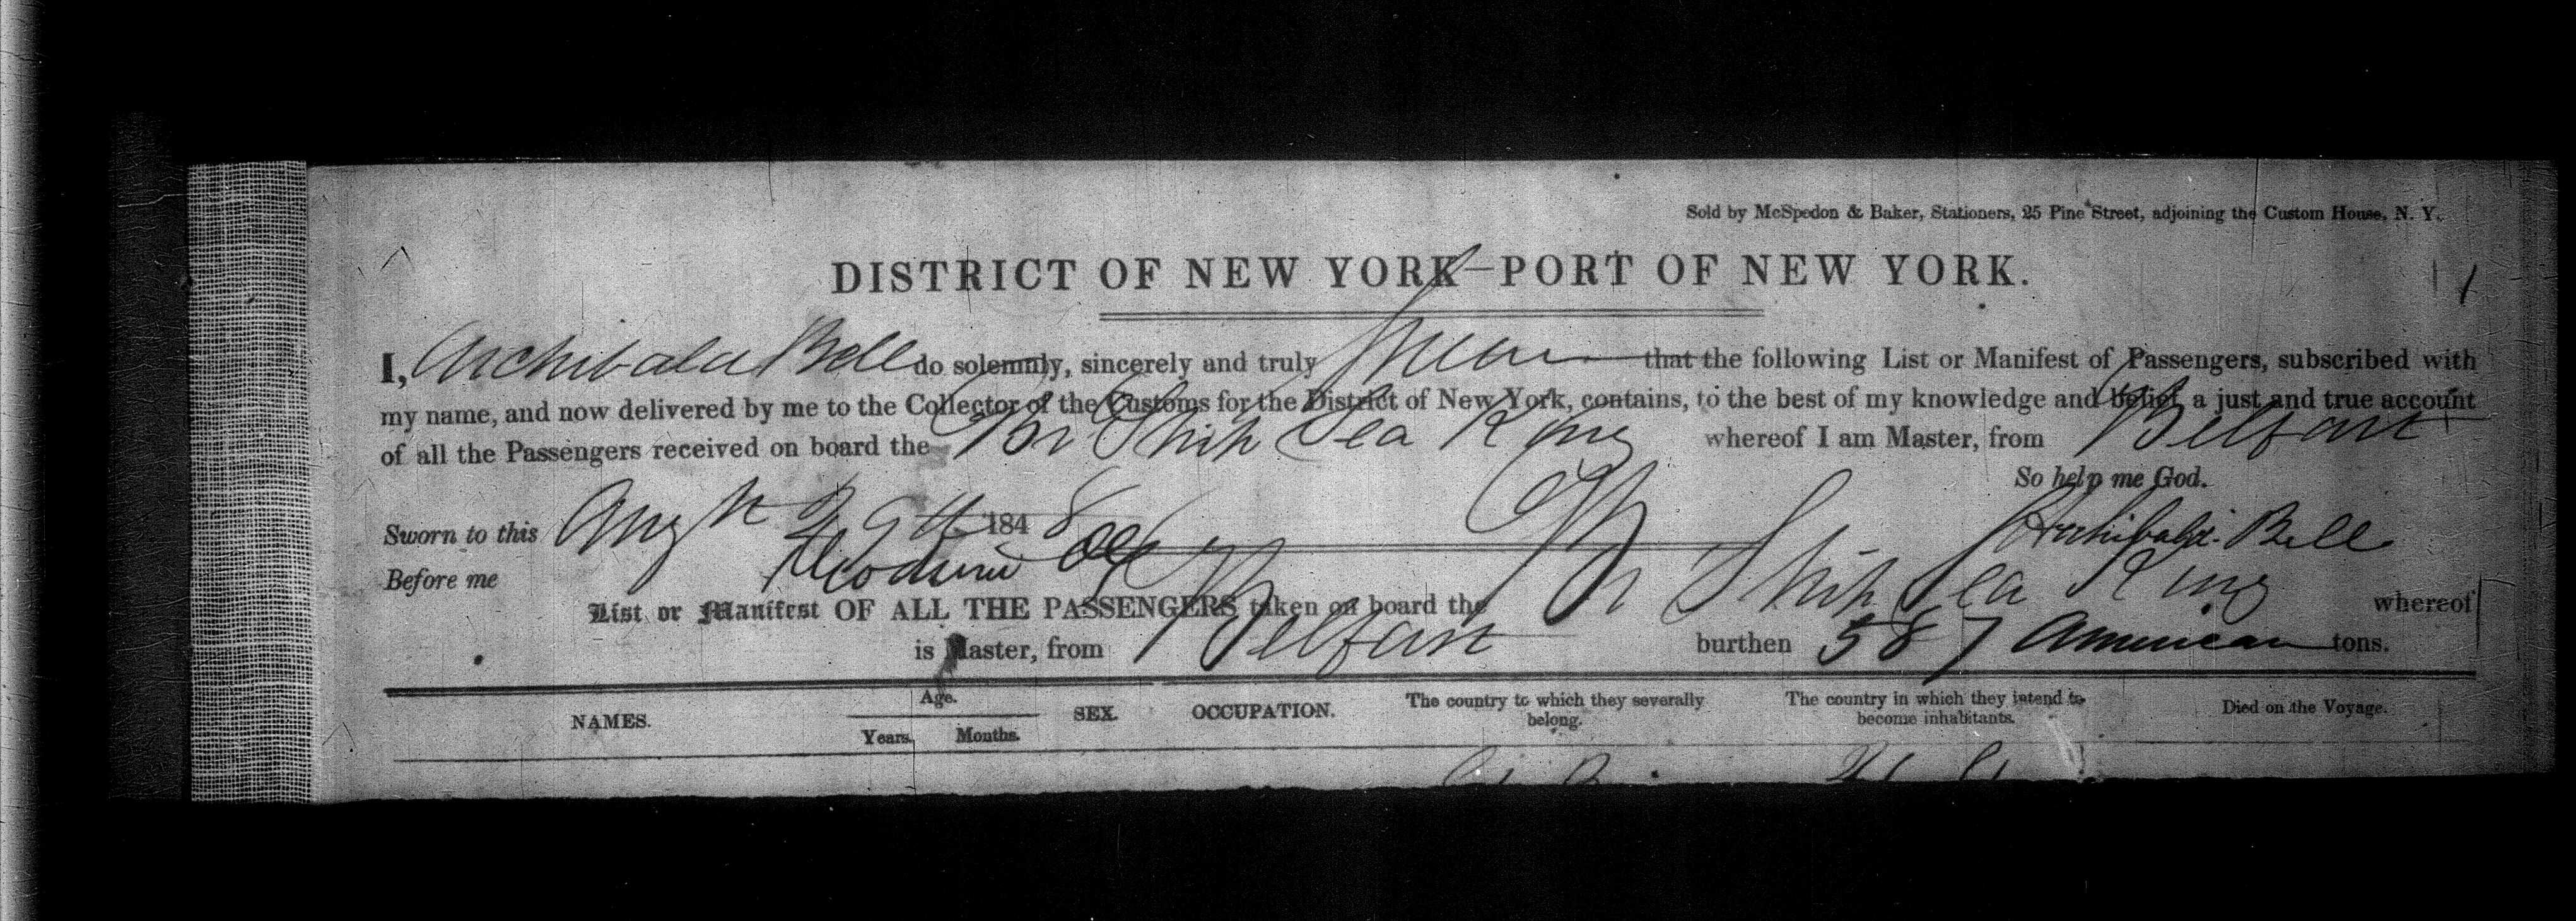 Sold by McSpedon & Baker, Stationers, 25 Pine Street, adjoining the Custom House, N. Y.
DISTRICT OF NEW YORK—PORT OF NEW YORK.
1
I, Archibald Bell do solemnly, sincerely and truly swear that the following List or Manifest of Passengers, subscribed with
my name, and now delivered by me to the Collector of the Customs for the District of New York, contains, to the best of my knowledge and belief, a just and true account
of all the Passengers received on board the Br Ship Sea King whereof I am Master, from Belfast
So help me God.
Sworn to this Augt 9th 1848 Archibald Bell
Before me
List or Manifest OF ALL THE PASSENGERS taken on board the Br Ship Sea King whereof
is Master, from Belfast burthen 587 American tons.
NAMES. Age. SEX. OCCUPATION. The country to which they severally belong. The country in which they intend to become inhabitants. Died on the Voyage.
Years. Months.